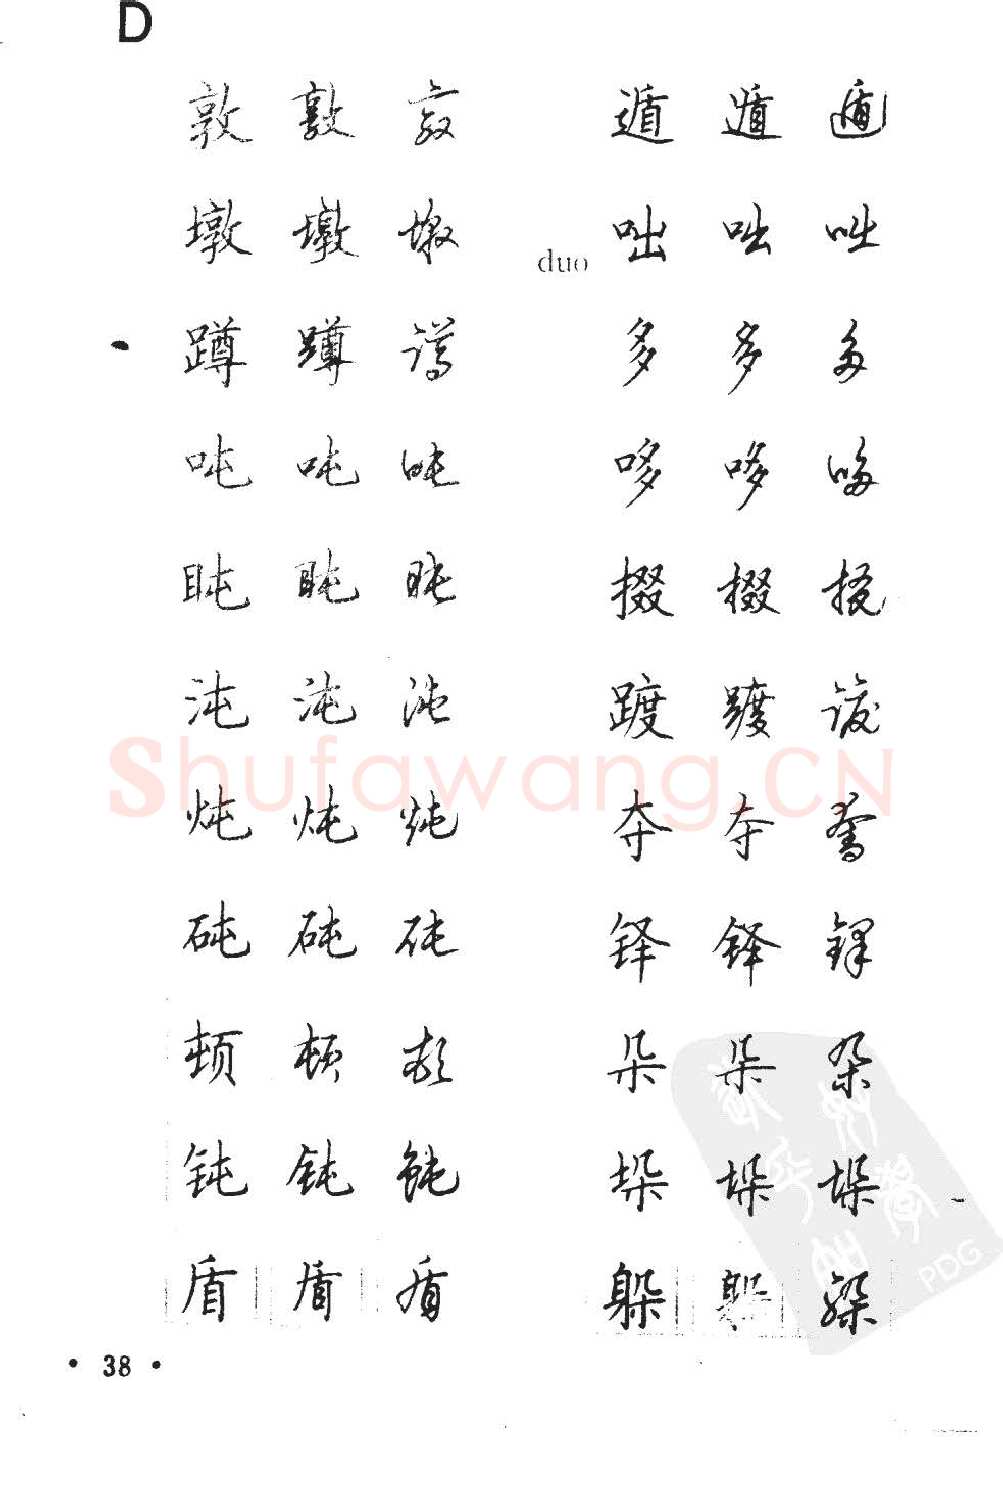 D
敦 敦 敦
墩 墩 墩
蹲 蹲 蹲
吨 吨 吨
盹 盹 盹
沌 沌 沌
炖 炖 炖
砘 砘 砘
顿 顿 顿
钝 钝 钝
盾 盾 盾
遁 遁 遁
duo
咄 咄 咄
多 多 多
哆 哆 哆
掇 掇 掇
踱 踱 踱
夺 夺 奪
铎 铎 铎
朵 朵 朵
垛 垛 垛
躲 躲 躲
• 38 •
Shufawang.CN
PDG